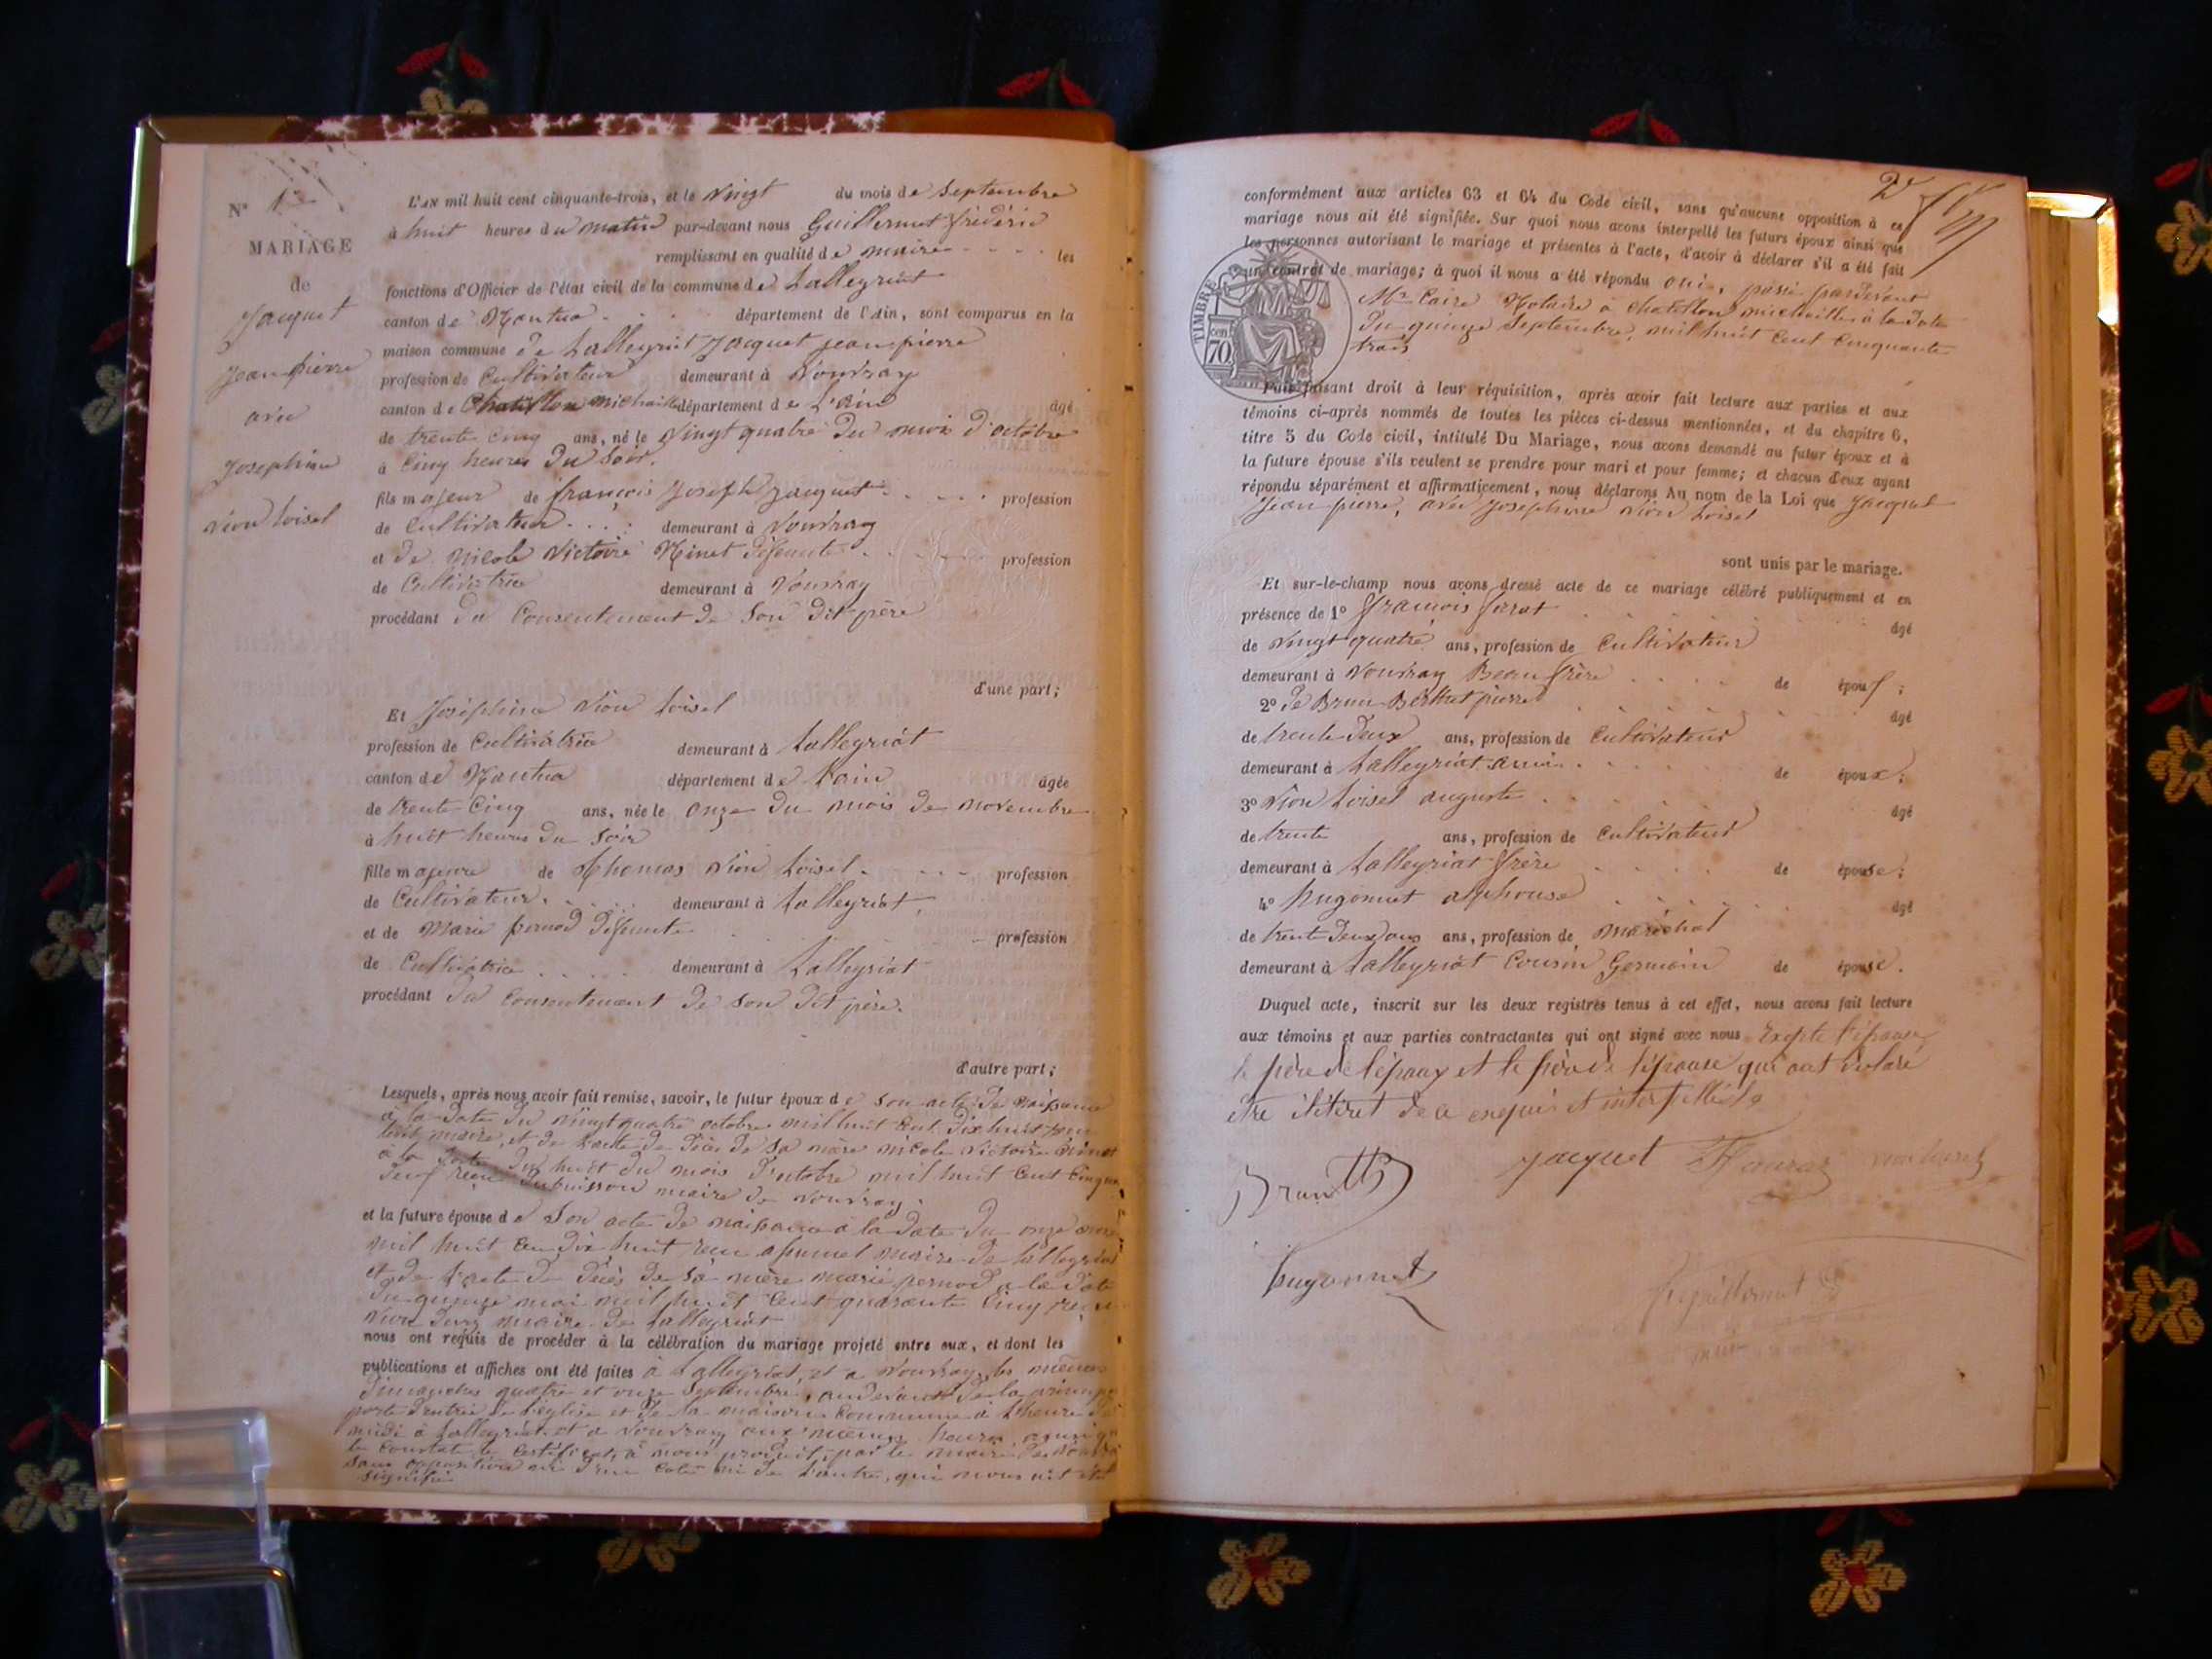 N° 1
MARIAGE
de
Jacquet
Jean pierre
avec
Josephine
Vion Loisel
L'AN mil huit cent cinquante-trois, et le vingt du mois de septembre
à huit heures du matin par-devant nous Guillermet frédéric
remplissant en qualité de maire les
fonctions d'Officier de l'état civil de la commune de Lalleyriat
canton de Nantua département de l'Ain, sont comparus en la
maison commune de Lalleyriat Jacquet jean pierre
profession de Cultivateur demeurant à Vouvray
canton de Chatillon michaille département de L'ain âgé
de trente cinq ans, né le vingt quatre du mois d'octobre
à Cinq heures du soir.
fils majeur de françois Joseph Jacquet profession
de Cultivateur demeurant à Vouvray
et de Nicole Victoire Ninet défunte profession
de Cultivatrice demeurant à Vouvray
procédant du Consentement de son dit père
d'une part;
Et Joséphine Vion Loisel
profession de Cultivatrice demeurant à Lalleyriat
canton de Nantua département de L'ain âgée
de trente Cinq ans, née le onze du mois de novembre
à huit heures du soir
fille majeure de Thomas Vion Loisel profession
de Cultivateur demeurant à Lalleyriat
et de Marie pernod défunte profession
de Cultivatrice demeurant à Lalleyriat
procédant du Consentement de son dit père.
d'autre part;
Lesquels, après nous avoir fait remise, savoir, le futur époux de son acte de naissance
à la date du vingt quatre octobre mil huit Cent dix huit
maire, et de l'acte de décès de sa mère nicole Victoire Ninet
a la date du huit du mois d'octobre mil huit Cent Cinquante
neuf reçu Dubuisson maire de Vouvray.
et la future épouse de son acte de naissance a la date du onze
mil huit Cent dix huit reçu maire de Lalleyriat
et de l'acte de décès de sa mère marie pernod a la date
du quinze mai mil huit Cent quarante Cinq reçu
Vion maire de Lalleyriat
nous ont requis de procéder à la célébration du mariage projeté entre eux, et dont les
publications et affiches ont été faites à Lalleyriat, et a Vouvray les mêmes
dimanches quatre et onze Septembre, au devant de la
porte d'entrée de l'église et de la maison Commune à l'heure de
midi à Lalleyriat et a Vouvray aux mêmes heures
le Constate le Certificat, à nous produit, par le maire de Vouvray
sans opposition ni d'un Coté ni de l'autre, qui nous ait été
signifié
2e
conformément aux articles 63 et 64 du Code civil, sans qu'aucune opposition à ce
mariage nous ait été signifiée. Sur quoi nous avons interpellé les futurs époux ainsi que
les personnes autorisant le mariage et présentes à l'acte, d'avoir à déclarer s'il a été fait
un contrat de mariage; à quoi il nous a été répondu oui, passé pardevant
Me Caire Notaire à Chatillon michaille à la date
du quinze Septembre, mil huit Cent Cinquante
trois
TIMBRE
cen
70
Puis faisant droit à leur réquisition, après avoir fait lecture aux parties et aux
témoins ci-après nommés de toutes les pièces ci-dessus mentionnées, et du chapitre 6,
titre 5 du Code civil, intitulé Du Mariage, nous avons demandé au futur époux et à
la future épouse s'ils veulent se prendre pour mari et pour femme; et chacun d'eux ayant
répondu séparément et affirmativement, nous déclarons Au nom de la Loi que Jacquet
Jean pierre, avec Josephine Vion Loisel
sont unis par le mariage.
Et sur-le-champ nous avons dressé acte de ce mariage célébré publiquement et en
présence de 1° françois âgé
de vingt quatre ans, profession de Cultivateur
demeurant à Vouvray Beau frère de époux;
2° de Brun Berthet pierre âgé
de trente deux ans, profession de Cultivateur
demeurant à Lalleyriat ami de époux;
3° Vion Loisel auguste âgé
de trente ans, profession de Cultivateur
demeurant à Lalleyriat frère de épouse;
4° hugonnet alphonse âgé
de trente deux ans ans, profession de maréchal
demeurant à Lalleyriat Cousin Germain de épouse.
Duquel acte, inscrit sur les deux registres tenus à cet effet, nous avons fait lecture
aux témoins et aux parties contractantes qui ont signé avec nous Excepté l'épouse
le père de l'époux et le père de l'épouse qui ont déclaré
être iliteret de ce enquis et interpellés
Jacquet
Brun
hugonnet
Guillermet